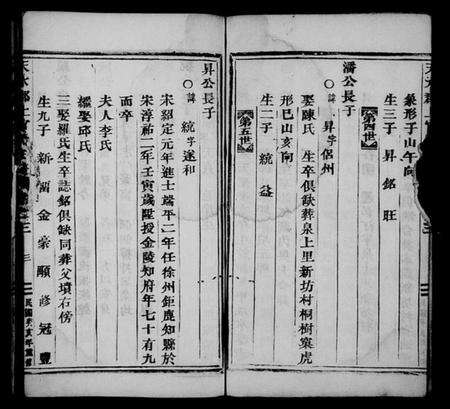 象形子山午向
生三子 昇 銘 旺
第四世
潘公長子
諱 昇 字侶州
娶陳氏 生卒俱缺葬泉上里新坊村桐樹窠虎
形巳山亥向
生二子 統 益
第五世
昇公長子
諱 統 字遂和
宋紹定元年進士端平二年任徐州鉅鹿知縣於
宋淳祐二年壬寅歲陞授金陵知府年七十有九
而卒
夫人李氏
繼娶邱氏
三娶羅氏生卒誌銘俱缺同葬父墳右傍
生九子 新 蘭 金 豪 顯 修 冠 豐
三